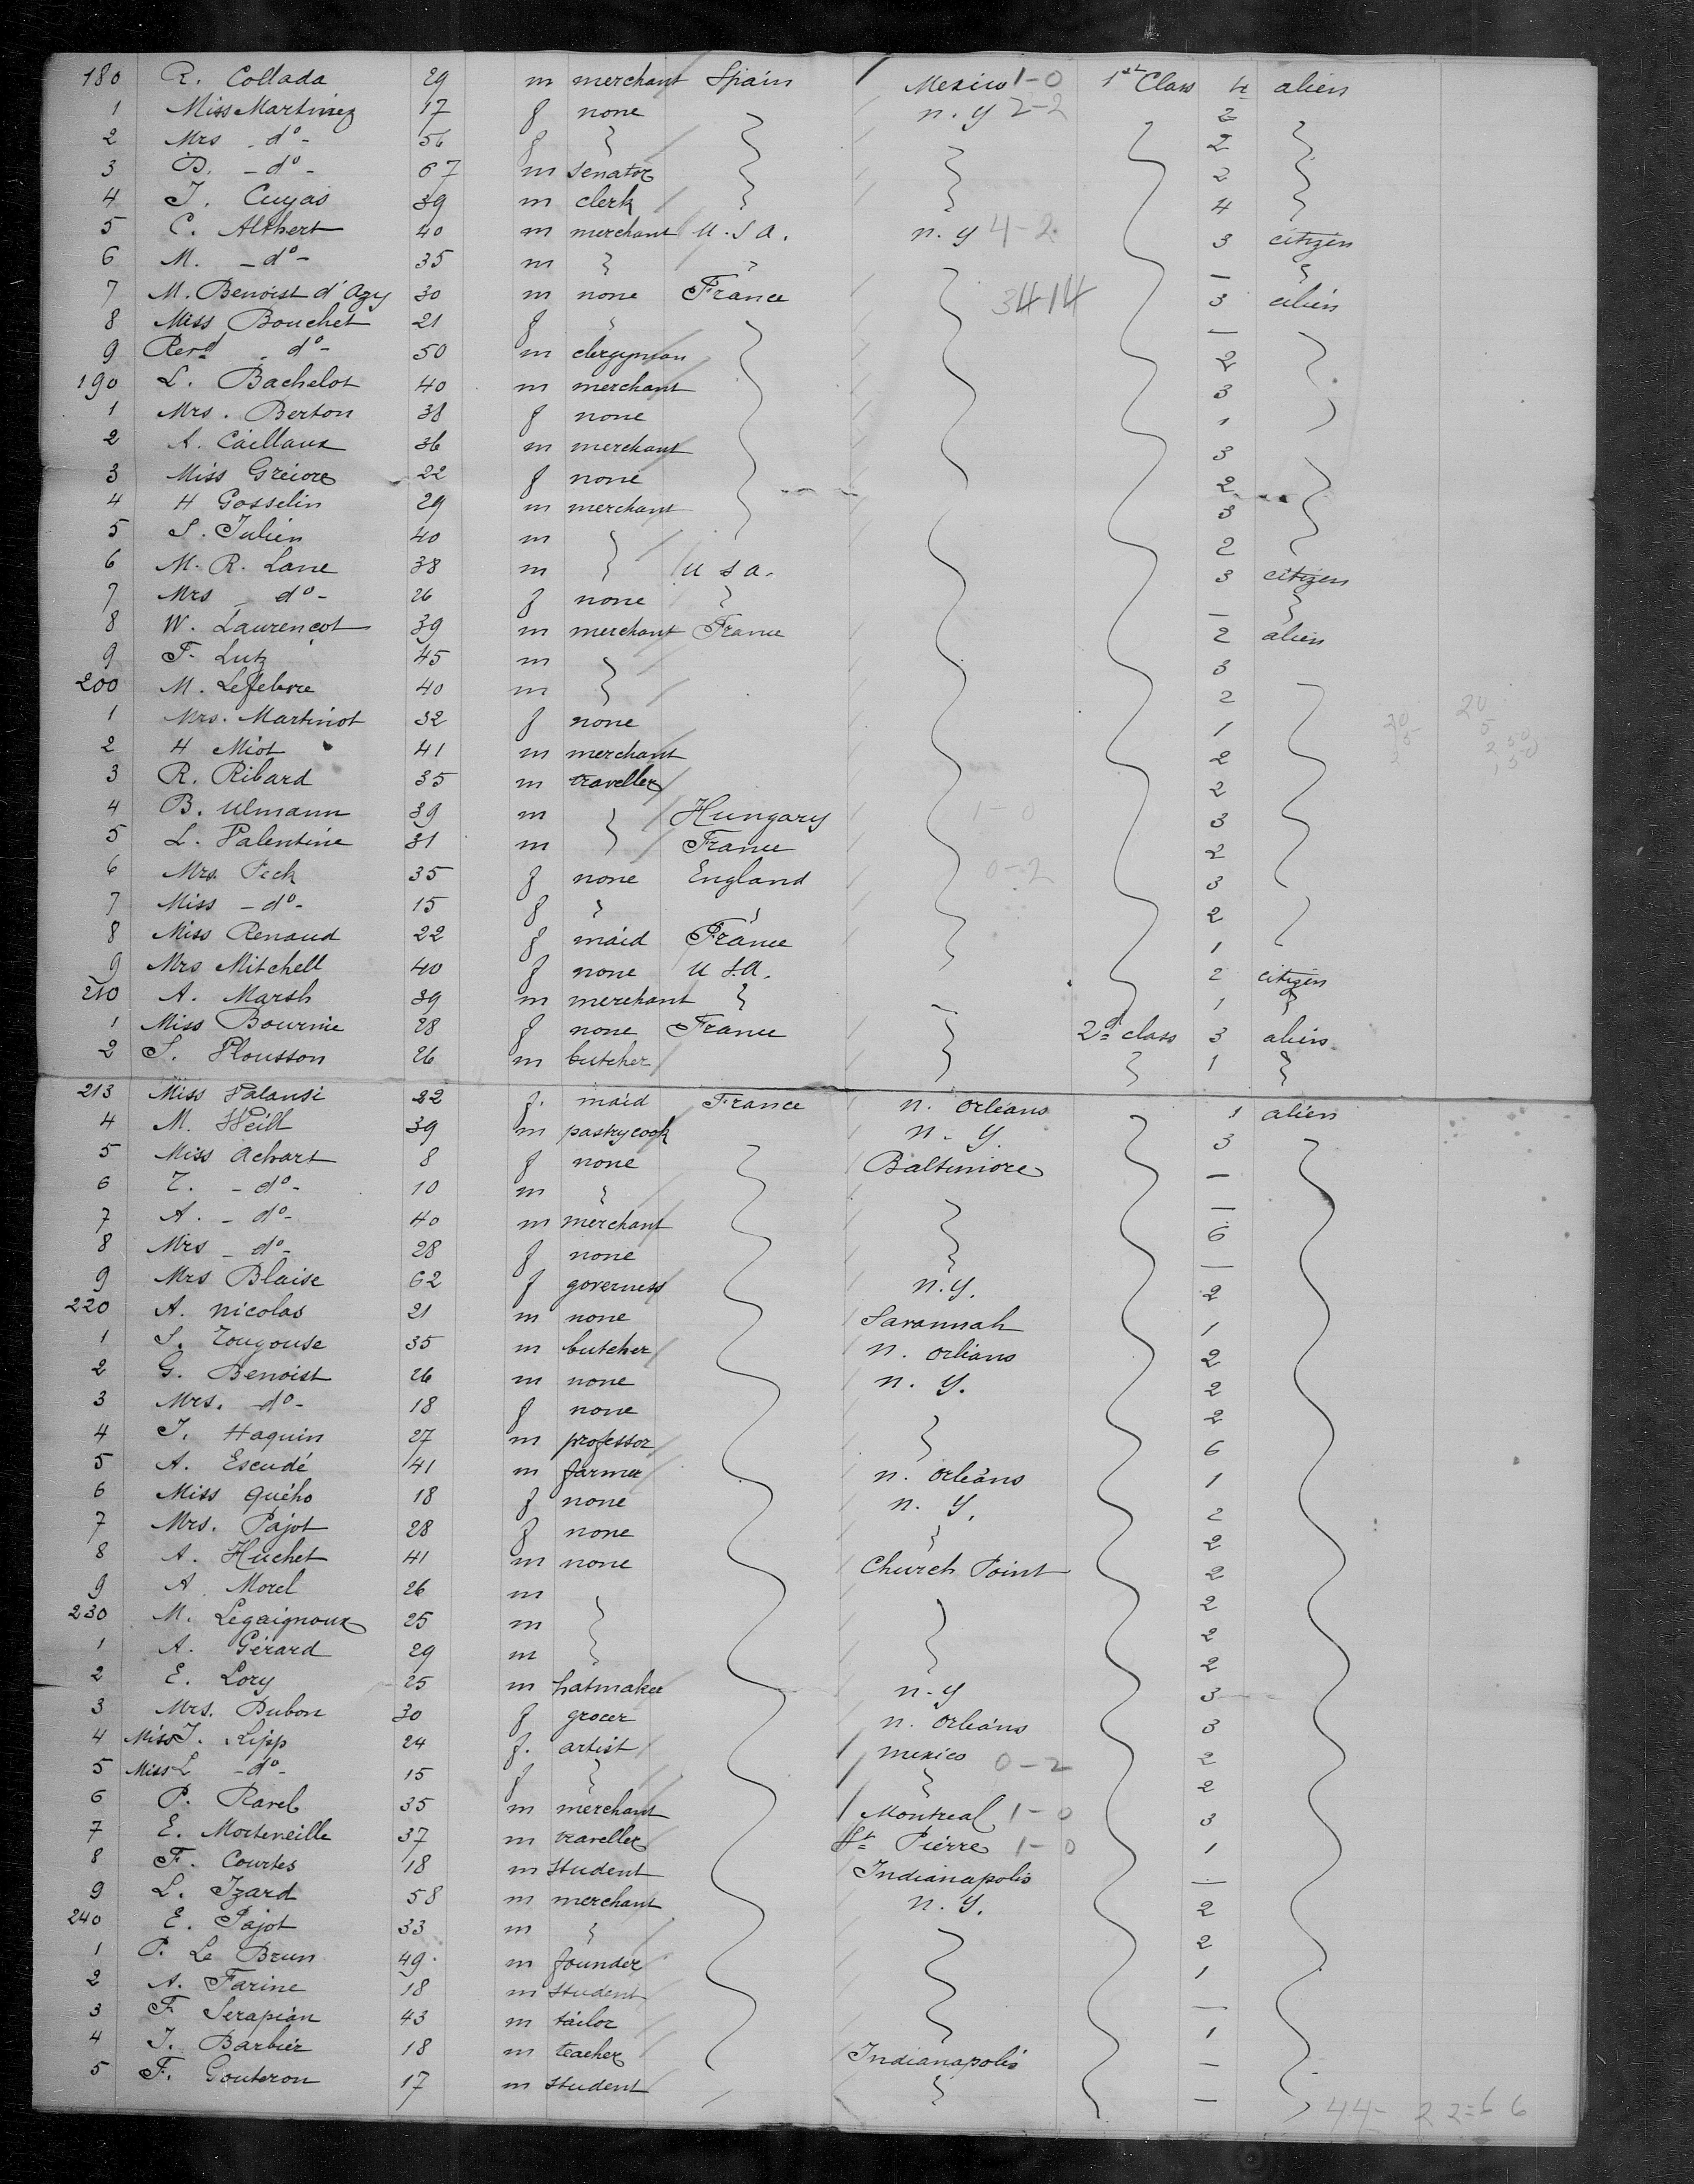 180 R. Collada 29 m merchant Spain Mexico 1-0 1st Class 4 alien
1 Miss Martinez 17 f none n. y 2-2 2
2 Mrs - do - 56 f 2
3 B. - do - 67 m senator 2
4 J. Cuyas 39 m clerk 4
5 C. Althert 40 m merchant U.S.A. n. y 4-2 3 citizen
6 M. - do - 35 m —
7 M. Benoist d'Azy 30 m none France 3414 3 alien
8 Miss Bouchet 21 f —
9 Revd - do - 50 m clergyman 2
190 L. Bachelot 40 m merchant 3
1 Mrs. Berton 38 f none 1
2 A. Caillaux 36 m merchant 3
3 Miss Greiore 22 f none 2
4 H Gosselin 29 m merchant 3
5 S. Julien 40 m 2
6 M. R. Lane 38 m U S A. 3 citizen
7 Mrs - do - 26 f none —
8 W. Laurençot 39 m merchant France 2 alien
9 F. Lutz 45 m 3
200 M. Lefebvre 40 m 2
1 Mrs. Martinot 32 f none 1
2 H Miot 41 m merchant 2
3 R. Ribard 35 m traveller 2
4 B. Ulmann 39 m Hungary 1-0 3
5 L. Valentine 31 m France 2
6 Mrs Peck 35 f none England 0-2 3
7 Miss - do - 15 f 2
8 Miss Renaud 22 f maid France 1
9 Mrs Mitchell 40 f none U S.A. 2 citizen
210 A. Marsh 39 m merchant 1
1 Miss Bournie 28 f none France 2d class 3 alien
2 S. Plousson 26 m butcher 1
213 Miss Palansi 22 f. maid France n. Orleans 1 alien
4 M. Weill 39 m pastrycook n. y. 3
5 Miss Achart 8 f none Baltimore —
6 T. - do - 10 m —
7 A. - do - 40 m merchant 6
8 Mrs - do - 28 f none —
9 Mrs Blaise 62 f governess n. y. 2
220 A. Nicolas 21 m none Savannah 1
1 S. Tougouse 35 m butcher n. Orleans 2
2 G. Benoist 26 m none n. y. 2
3 Mrs. - do - 18 f none 2
4 J. Haquin 27 m professor 6
5 A. Escudé 41 m farmer n. Orleans 1
6 Miss Quého 18 f none n. y. 2
7 Mrs. Pajot 28 f none 2
8 A. Huchet 41 m none Church Point 2
9 A Morel 26 m 2
230 M. Legaignoux 25 m 2
1 A. Gérard 29 m 2
2 E. Lory 25 m hatmaker n. y 3
3 Mrs. Dubon 30 f grocer n. Orleans 3
4 Miss J. Kipp 24 f. artist mexico 0-2 2
5 Miss L - do - 15 f 2
6 P. Ravel 35 m merchant Montreal 1-0 3
7 E. Morteneille 37 m traveller St Pierre 1-0 1
8 F. Courtes 18 m student Indianapolis —
9 L. Izard 58 m merchant n. y. 2
240 E. Pajot 33 m 2
1 P. Le Brun 49 m founder 1
2 A. Farine 18 m student —
3 F. Serapian 43 m tailor 1
4 J. Barbier 18 m teacher Indianapolis —
5 F. Gouteron 17 m student —
44- 22=66